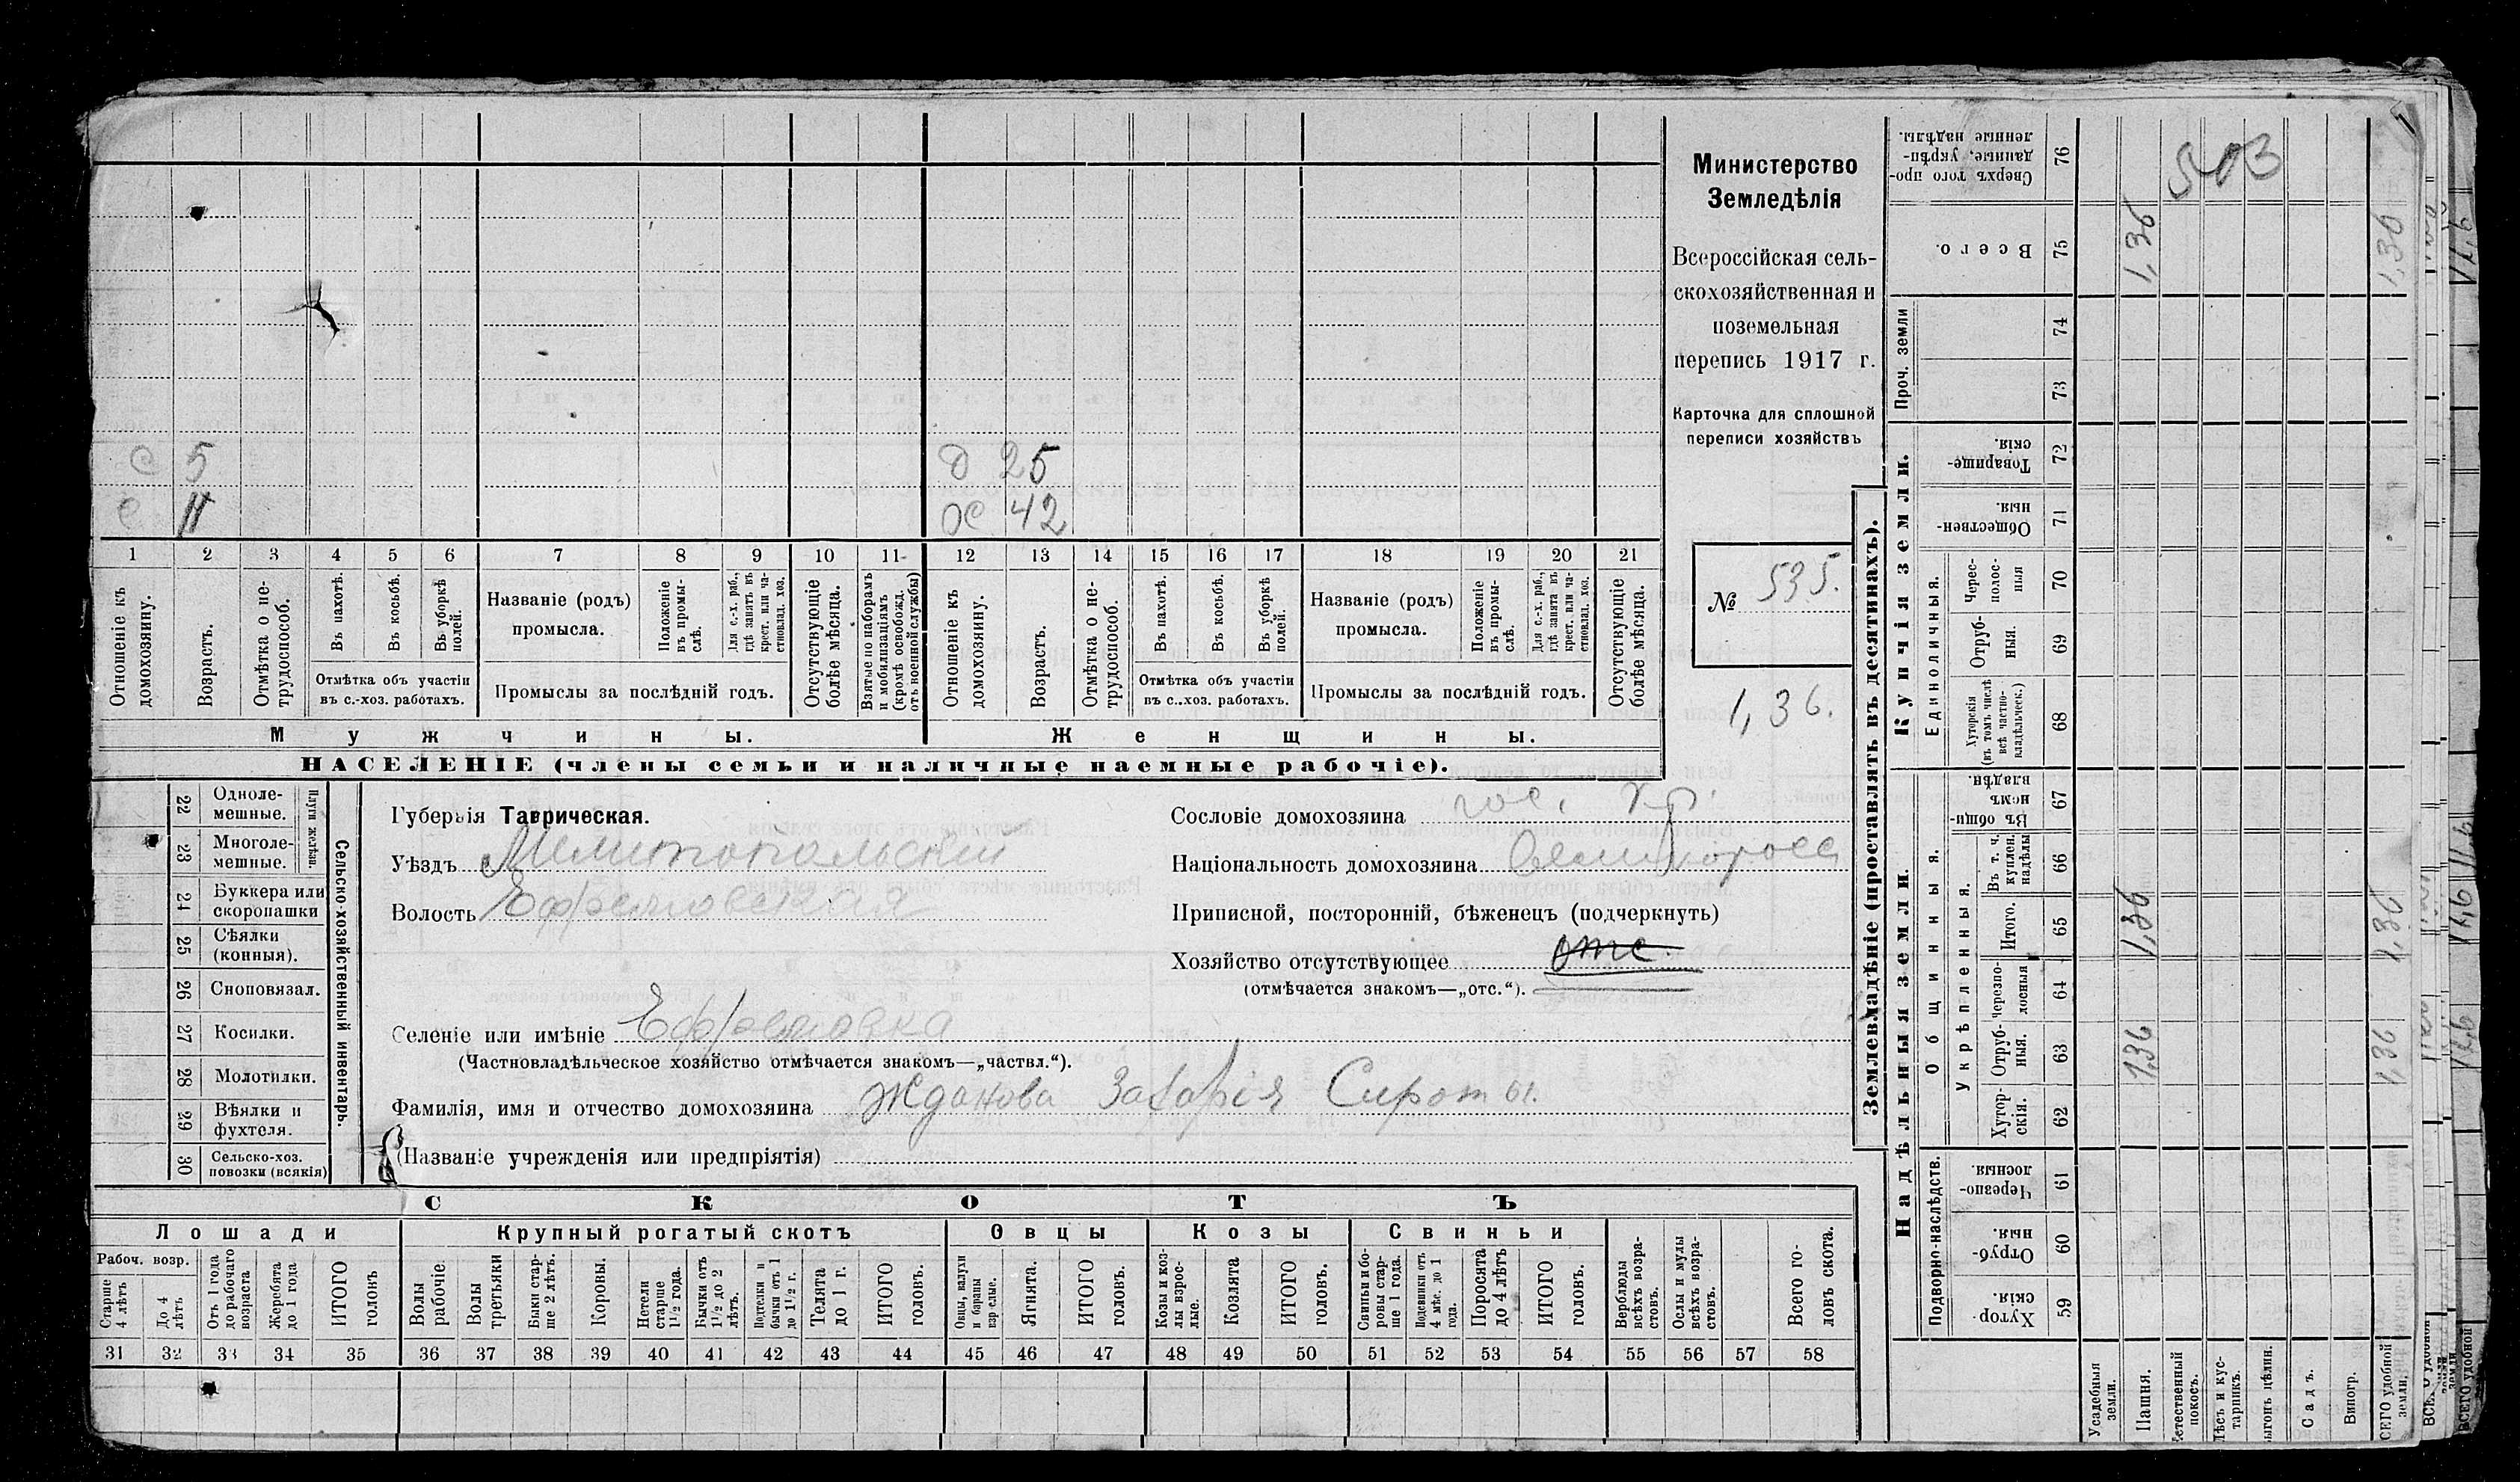 Министерство
Земледѣлія
Всероссійская сель-
скохозяйственная и
поземельная
перепись 1917 г.
Карточка для сплошной
переписи хозяйствъ
№ 535.
1,36.
С 5
С 11
Д 25
Ж 42
1 2 3 4 5 6 7 8 9 10 11 12 13 14 15 16 17 18 19 20 21
Отношеніе къ домохозяину.
Возрастъ.
Отмѣтка о не-трудоспособ.
Въ пахотѣ.
Въ косьбѣ.
Въ уборкѣ полей.
Отмѣтка объ участіи
въ с.-хоз. работахъ.
Названіе (родъ)
промысла.
Положеніе въ промы-слѣ.
Для с.-х. раб., гдѣ занятъ въ крест. или ча-стновлад. хоз.
Промыслы за послѣдній годъ.
Отсутствующіе болѣе мѣсяца.
Взятые по наборамъ и мобилизаціямъ (кромѣ освобожд. отъ военной службы)
Отношеніе къ домохозяину.
Возрастъ.
Отмѣтка о не-трудоспособ.
Въ пахотѣ.
Въ косьбѣ.
Въ уборкѣ полей.
Отмѣтка объ участіи
въ с.-хоз. работахъ.
Названіе (родъ)
промысла.
Положеніе въ промы-слѣ.
Для с.-х. раб., гдѣ занята въ крест. или ча-стновлад. хоз.
Промыслы за послѣдній годъ.
Отсутствующіе болѣе мѣсяца.
Мужчины.
Женщины.
НАСЕЛЕНІЕ (члены семьи и наличные наемные рабочіе).
Сельско-хозяйственный инвентарь.
Плуги желѣзн.
22 Одноле-мешные.
23 Многоле-мешные.
24 Буккера или скоропашки
25 Сѣялки (конныя).
26 Сноповязал.
27 Косилки.
28 Молотилки.
29 Вѣялки и фухтеля.
30 Сельско-хоз. повозки (всякія)
Губернія Таврическая.
Уѣздъ Мелитопольскій
Волость Ефремовская
Селеніе или имѣніе Ефремовка
(Частновладѣльческое хозяйство отмѣчается знакомъ—„частвл.“).
Фамилія, имя и отчество домохозяина Жданова Захарія Сироты.
(Названіе учрежденія или предпріятія)
Сословіе домохозяина гос. кр.
Національность домохозяина великоросс
Приписной, посторонній, бѣженецъ (подчеркнуть)
Хозяйство отсутствующее отс.
(отмѣчается знакомъ—„отс.“).
СКОТЪ
Лошади
Крупный рогатый скотъ
Овцы
Козы
Свиньи
Рабоч. возр.
Старше 4 лѣтъ
До 4 лѣтъ
Отъ 1 года до рабочаго возраста
Жеребята до 1 года
ИТОГО головъ
Волы рабочіе.
Волы третьяки
Быки стар-ше 2 лѣтъ.
Коровы.
Нетели старше 1½ года.
Бычки отъ 1½ до 2 лѣтъ.
Подтелки и бычки отъ 1 до 1½ г.
Телята до 1 г.
ИТОГО головъ.
Овцы, валухи и бараны взрослые.
Ягнята.
ИТОГО головъ.
Козы и коз-лы взрос-лые.
Козлята
ИТОГО головъ.
Свиньи и бо-ровы стар-ше 1 года.
Подсвинки отъ 4 мѣс. до 1 года.
Поросята до 4 лѣтъ
ИТОГО головъ.
Верблюды всѣхъ возра-стовъ.
Ослы и мулы всѣхъ возра-стовъ.
Всего го-ловъ скота.
31 32 33 34 35 36 37 38 39 40 41 42 43 44 45 46 47 48 49 50 51 52 53 54 55 56 57 58
Землевладѣніе (проставлять въ десятинахъ).
Купчія земли.
Надѣльныя земли.
Сверхъ того про-данные, укрѣп-ленные надѣлы. 76
503
Всего. 75 1,36 1,36
Проч. земли 74 73
Товарище-скія. 72
Обществен-ныя. 71
Единоличныя.
Черес-полос-ныя 70
Отруб-ныя. 69
Хуторскія (въ томъ числѣ всѣ частно-владѣльческ.) 68
Общинныя.
Въ общи-номъ владѣн. 67
Укрѣпленныя.
Въ т. ч. куплен. надѣлы 66
Итого. 65 1,36 1,36
Черезпо-лосныя 64
Отруб-ныя. 63 1,36 1,36
Хутор-скія. 62
Подворно-наслѣдств.
Черезпо-лосныя. 61
Отруб-ныя. 60
Хутор-скія. 59
Усадебныя земли.
Пашня.
Естественный покосъ.
Лѣсъ и кус-тарникъ.
Выгонъ цѣлин.
Садъ.
Виногр.
ВСЕГО удобной земли,